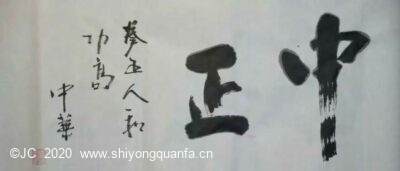 中正
拳正人和
功高
中華
©JC 2020 www.shiyongquanfa.cn